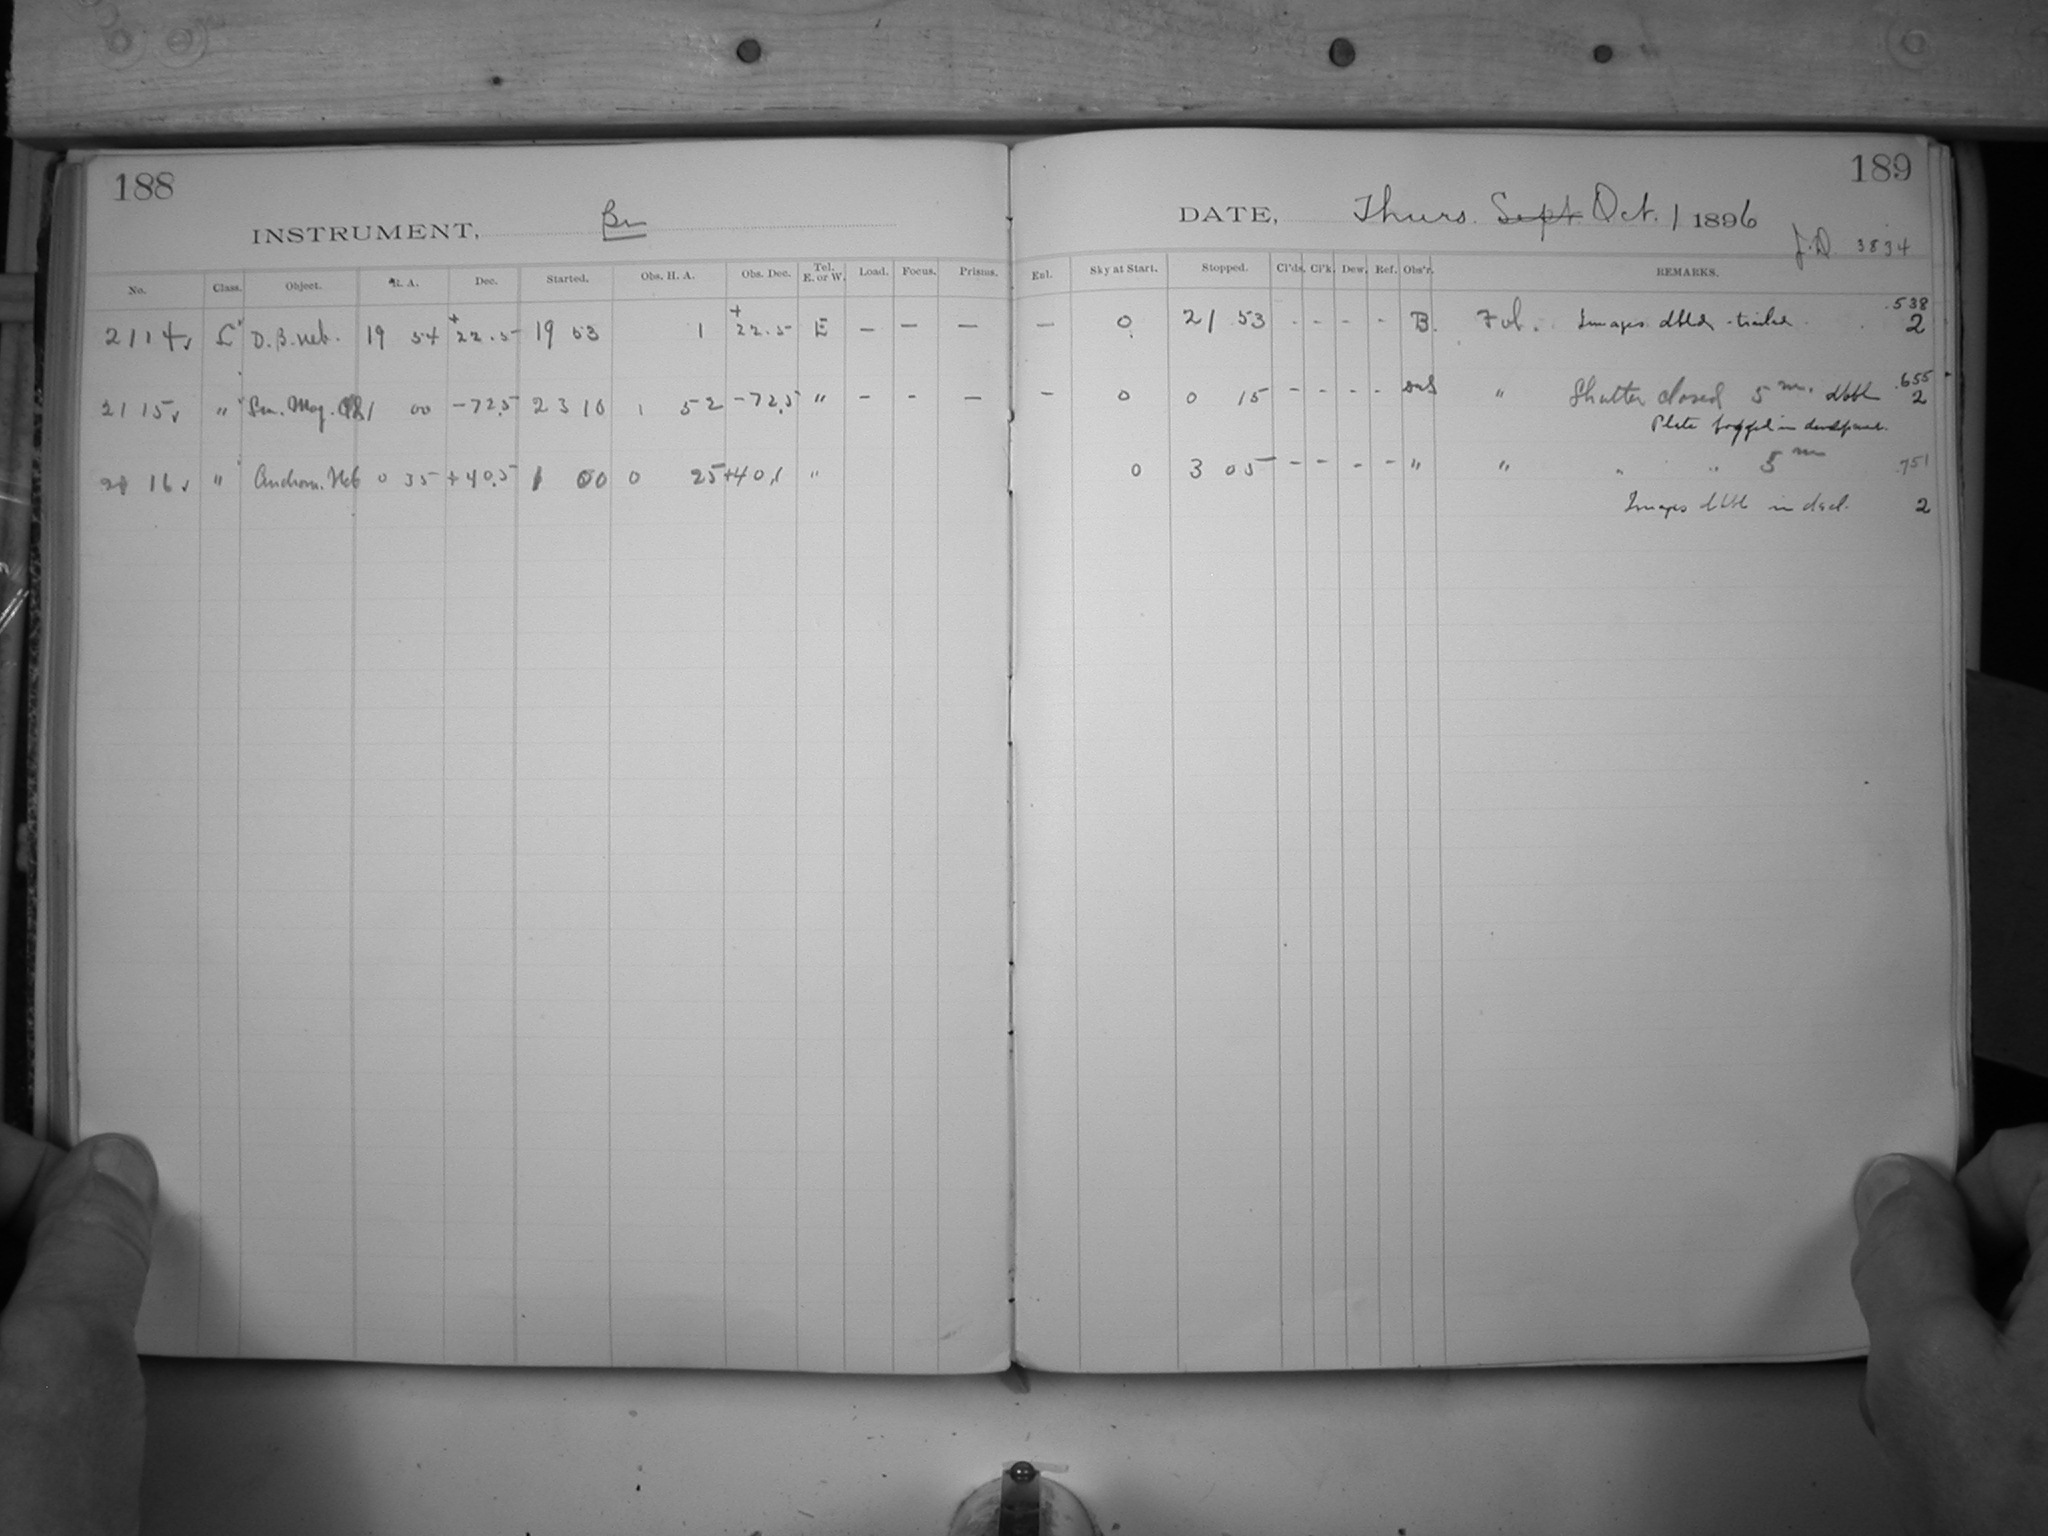 188
INSTRUMENT,
189
DATE, Thurs. Sept. Oct. 1 1896
J.D. 3834
No. Class. Object. R. A. Dec. Started. Obs. H. A. Obs. Dec. Tel. E. or W. Load. Focus. Prisms. Eul. Sky at Start. Stopped. Cl'ds. Cl'k. Dew. Ref. Obs'r. REMARKS.
2114 L D. B. neb. 19 54 +22.5 19 53 1 +22.5 E – – – – 0 21 53 - - - - B. Images dbld - trailed .538 2
2115 " Sm. Mag. 1 00 -72.5 23 10 1 52 -72.5 " – - – – 0 0 15 - - - - " Shutter closed 5 m. dbbl .655 2
Plate fogged in
2116 " Androm. Neb 0 35 +40.5 1 00 0 25 +40.1 " 0 3 05 - - - - " " " " 5 m .751
Images dbl in decl. 2